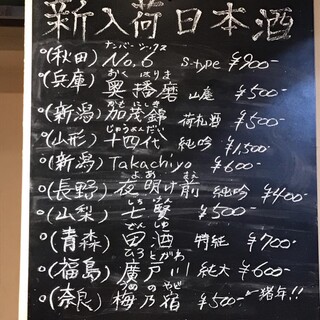 新入荷日本酒
ナンバーシックス
(秋田) No.6 S-type ¥900-
おくはりま
(兵庫) 奥播磨 山廃 ¥500-
かもにしき
(新潟) 加茂錦 荷札酒 ¥500-
じゅうよんだい
(山形) 十四代 純吟 ¥1,500-
(新潟) Takachiyo ¥600-
よあまえ
(長野) 夜明け前 純吟 ¥400-
しちけん
(山梨) 七賢 ¥500-
でんしゅ
(青森) 田酒 特純 ¥700-
ひろとがわ
(福島) 廣戸川 純大 ¥600-
うめのやど
(奈良) 梅乃宿 ¥500- 猪年!!